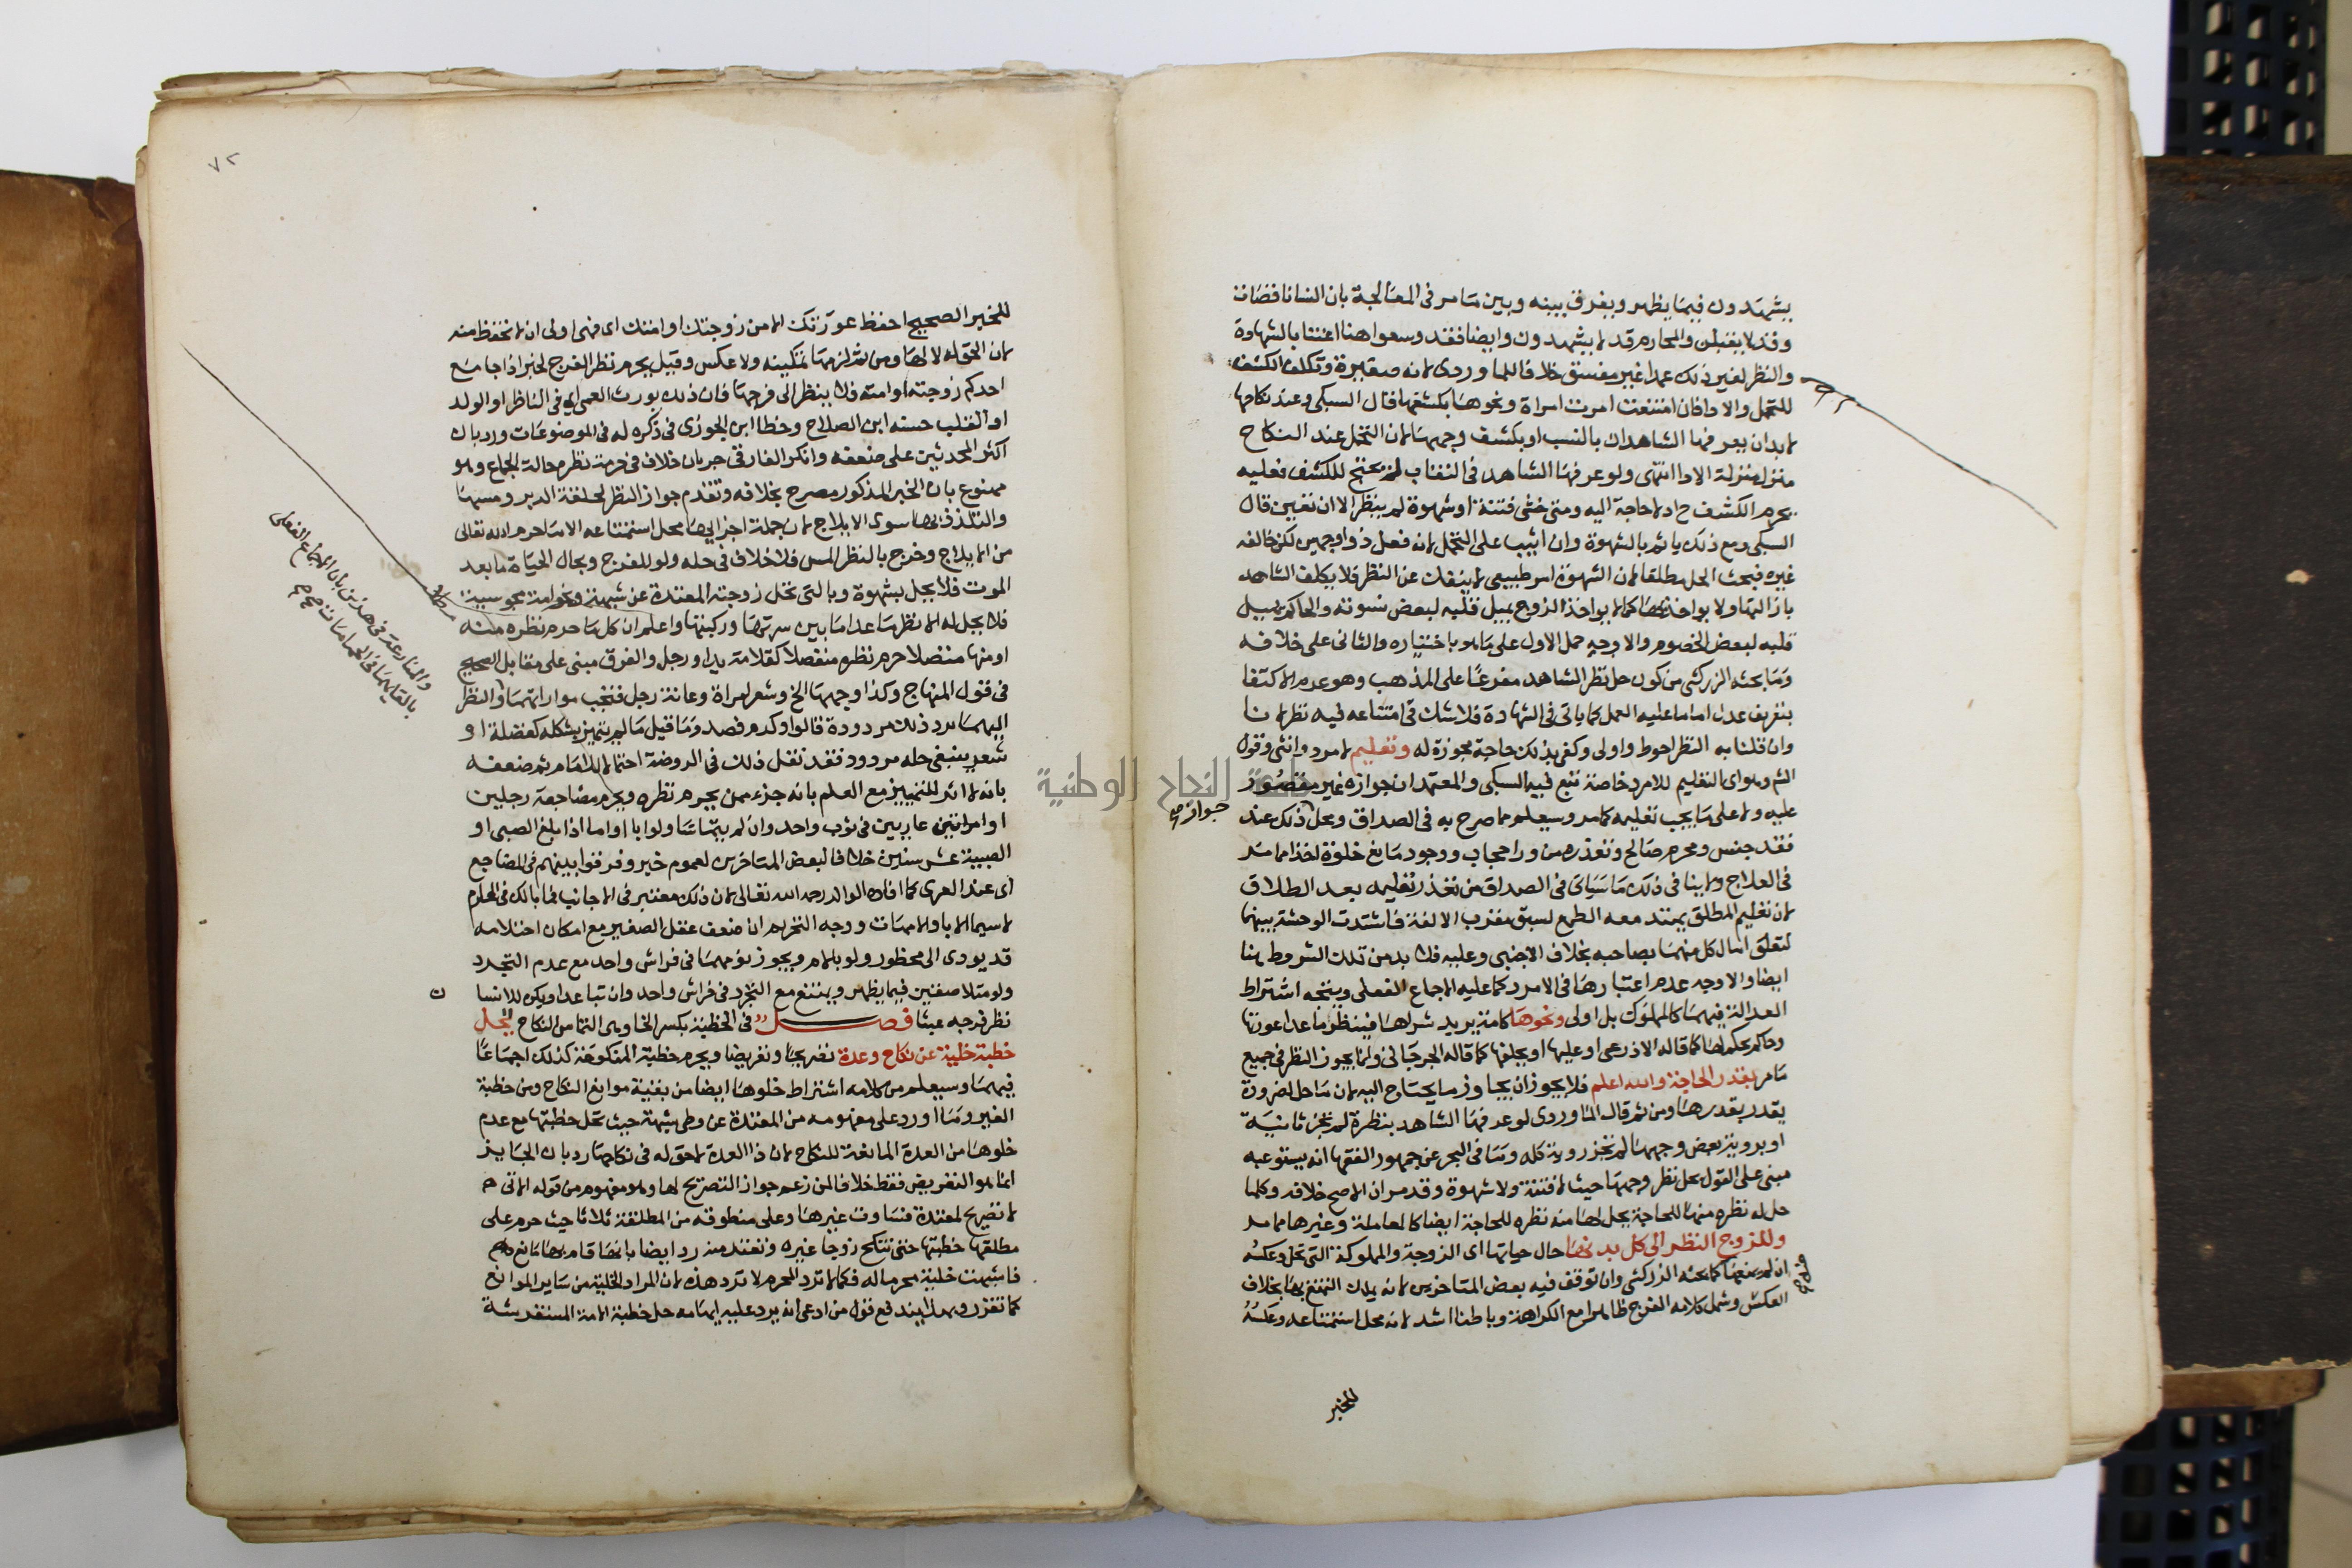 يشهدون فيما يظهر ويفرق بينه وبين ما مر في المعالجة بان النسا ناقصات
وقد لا يقبلن والمحارم قد لا يشهدون وايضا فقد وسعوا هنا اعتنا بالشهادة
والنظر لغير ذلك عمدا غير مفسق خلافا للماوردي لانه صغيرة وتكلف الكشف
للتحمل والادا فان امتنعت امرت امراة ونحوها بكشفها قال السبكي وعند نكاحها
لا بد ان يعرفها الشاهدان بالنسب او بكشف وجهها لان التحمل عند النكاح
منزل منزلة الادا انتهى ولو عرفها الشاهد في النقاب لم يحتج للكشف فعليه
يحرم الكشف ح اذ لا حاجة اليه ومتى خشى فتنة او شهوة لم ينظر الا ان تعين قال
السبكي ومع ذلك ياثم بالشهوة وان اثيب على التحمل لانه فعل ذو وجهين لكن خالفه
غيره فبحث الحل مطلقا لان الشهوة امر طبيعي لا ينفك عن النظر فلا يكلف الشاهد
بازالتها ولا يواخذ بها كما لا يواخذ الزوج بميل قلبه لبعض نسوته والحاكم بميل
قلبه لبعض الخصوم والاوجه حمل الاول على ما هو باختياره والثاني على خلافه
وما بحثه الزركشي من كون حل نظر الشاهد مفرعا على المذهب وهو عدم الاكتفا
بتعريف عدل اما ما عليه العمل كما ياتي في الشهادة فلا شك في امتناعه فيه نظر لانا
وان قلنا به النظر احوط واولى وكفى بذلك حاجة مجوزة له وتعليم لامرد وانثى وقول
الشم وهو اي التعليم للامرد خاصة تبع فيه السبكي والمعتمد ان جوازه غير مقصور
عليه ولا على ما يجب تعليمه كما مر وسيعلم مما صرح به في الصداق ومحل ذلك عند
جواز صح
فقد جنس ومحرم صالح وتعذره من ورا حجاب ووجود مانع خلوة اخذا مما مر
في العلاج ولا ينافي ذلك ما سياتي في الصداق من تعذر تعليمه بعد الطلاق
لان تعليم المطلق يمتد معه الطمع لسبق مقرب الالفة فاشتدت الوحشة بينهما
لتعلق امال كل منهما بصاحبه بخلاف الاجنبي وعليه فلا بد من تلك الشروط هنا
ايضا والاوجه عدم اعتبارها في الامرد كما عليه الاجماع الفعلي ويتجه اشتراط
العدالة فيهما كالمملوك بل اولى ونحوها كامة يريد شراها فينظر ما عدا عورتها
وحاكم يحكم لها كما قاله الاذرعي او عليها او يحلفها كما قاله الجرجاني وانما يجوز النظر في جميع
ما مر بقدر الحاجة والله اعلم فلا يجوز ان يجاوز ما يحتاج اليه لان ما حل لضرورة
يقدر بقدرها ومن ثم قال الماوردي لو عرفها الشاهد بنظرة لم تجز ثانية
او بروية بعض وجهها لم تجز روية كله وما في البحر عن جمهور الفقها انه يستوعبه
مبني على القول بحل نظر وجهها حيث لا فتنة ولا شهوة وقد مر ان الاصح خلافه وكلما
حل له نظره منها للحاجة يحل لها منه نظره للحاجة ايضا كالمعاملة وغيرها مما مر
وللزوج النظر الى كل بدنها حال حياتها اي الزوجة والمملوكة التي تحل وعكسه
ان لم يمنعها كما بحثه الزركشي وان توقف فيه بعض المتاخرين لانه يملك التمتع بها بخلاف
العكس وشمل كلامه الفرج ظاهرا مع الكراهة وباطنا اشد لانه محل استمتاعه وعكسه
للخبر
٧٢
للخبر الصحيح احفظ عورتك الا من زوجتك او امتك اي فهي اولى ان لا تحفظ منه
لان الحق له لا لها ومن ثم لزمها تمكينه ولا عكس وقيل يحرم نظر الفرج لخبر اذا جامع
احدكم زوجته او امته فلا ينظر الى فرجها فان ذلك يورث العمى اي في الناظر او الولد
او القلب حسنه ابن الصلاح وخطا ابن الجوزي في ذكره له في الموضوعات ورد بان
اكثر المحدثين على ضعفه وانكر الفارقي جريان خلاف في حرمة نظره حالة الجماع وهو
ممنوع بان الخبر المذكور مصرح بخلافه وتقدم جواز النظر لحلقة الدبر ومسها
والتلذذ بها سوى الايلاج لان جملة اجزائها محل استمتاعه الا ما حرم الله تعالى
من الايلاج وخرج بالنظر المس فلا خلاف في حله ولو للفرج وبحال الحياة ما بعد
الموت فلا يحل بشهوة وبالتي تحل زوجته المعتدة عن شبهة ونحو امة مجوسية
فلا يحل له الا نظر ما عدا ما بين سرتها وركبتها واعلم ان كل ما حرم نظره منه
او منها متصلا حرم نظره منفصلا كقلامة يد او رجل والفرق مبني على مقابل الصحيح
في قول المنهاج وكذا وجهها الخ وشعر امراة وعانة رجل فتجب مواراتهما والنظر
والمنازعة في هذين بان الاجماع الفعلي
بالقايهما في الحمامات صح
اليهما مردودة قالوا وكدم فصد وما قيل ما لم يتميز بشكله كفضلة او
شعر ينبغي حله مردود فقد نقل ذلك في الروضة احتمالا للامام ثم ضعفه
بانه لا اثر للتمييز مع العلم بانه جزء ممن يحرم نظره ويحرم مضاجعة رجلين
او امراتين عاريين في ثوب واحد وان لم يتماسا ولو ابا او اما اذا بلغ الصبي او
الصبية عشر سنين خلافا لبعض المتاخرين لعموم خبر وفرقوا بينهم في المضاجع
اي عند العرى كما افاده الوالد رحمه الله تعالى لان ذلك معتبر في الاجانب فما بالك في المحارم
لا سيما الابا والامهات ووجه التحريم ان ضعف عقل الصغير مع امكان احتلامه
قد يودي الى محظور ولو بالام ويجوز نومهما في فراش واحد مع عدم التجرد
ولو متلاصقين فيما يظهر ويمتنع مع التجرد في فراش واحد وان تباعدا ويكره للانسا
ن
نظر فرجه عبثا فصل في الخطبة بكسر الخا وهي التماس النكاح تحل
خطبة خلية عن نكاح وعدة تصريحا وتعريضا ويحرم خطبة المنكوحة كذلك اجماعا
فيهما وسيعلم من كلامه اشتراط خلوها ايضا من بقية موانع النكاح ومن خطبة
الغير وما اورد على مفهومه من المعتدة عن وطى شبهة حيث تحل خطبتها مع عدم
خلوها من العدة المانعة للنكاح لان ذا العدة لا حق له في نكاحها رد بان الجايز
انما هو التعريض فقط خلافا لمن زعم جواز التصريح لها وهو مفهوم من قوله الاتي
لا تصريح لمعتدة فتساوت غيرها وعلى منطوقه من المطلقة ثلاثا حيث حرم على
مطلقها خطبتها حتى تنكح زوجا غيره وتعتد منه رد ايضا بانها قام بها مانع
فاشبهت خلية محرما له فكما لا ترد المحرم لا ترد هذه لان المراد الخلية من ساير الموانع
كما تقرر وبهذا يندفع قول من ادعى انه يرد عليه ايهامه حل خطبة الامة المستفرشة